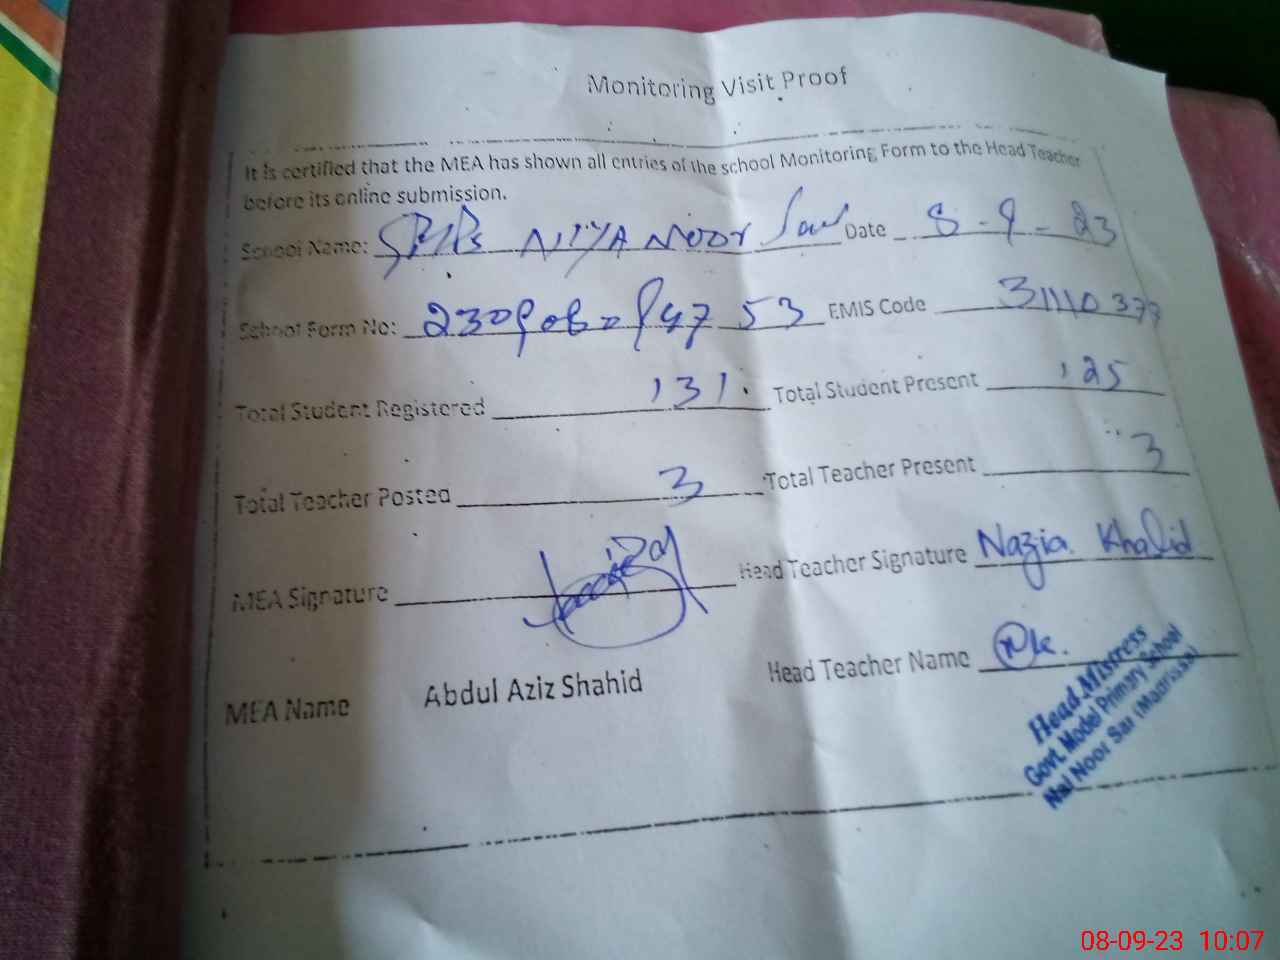 Monitoring Visit Proof
It is certified that the MEA has shown all entries of the school Monitoring Form to the Head Teacher
before its online submission.
School Name: NIYA Noor Date 8-9-23
School Form No: 53 EMIS Code
Total Student Registered 131 Total Student Present 125
Total Teacher Posted 3 Total Teacher Present 3
MEA Signature Head Teacher Signature Nazia Khalid
MEA Name Abdul Aziz Shahid Head Teacher Name
Head Mistress
Govt. Model Primary School
Noor Sar
08-09-23 10:07